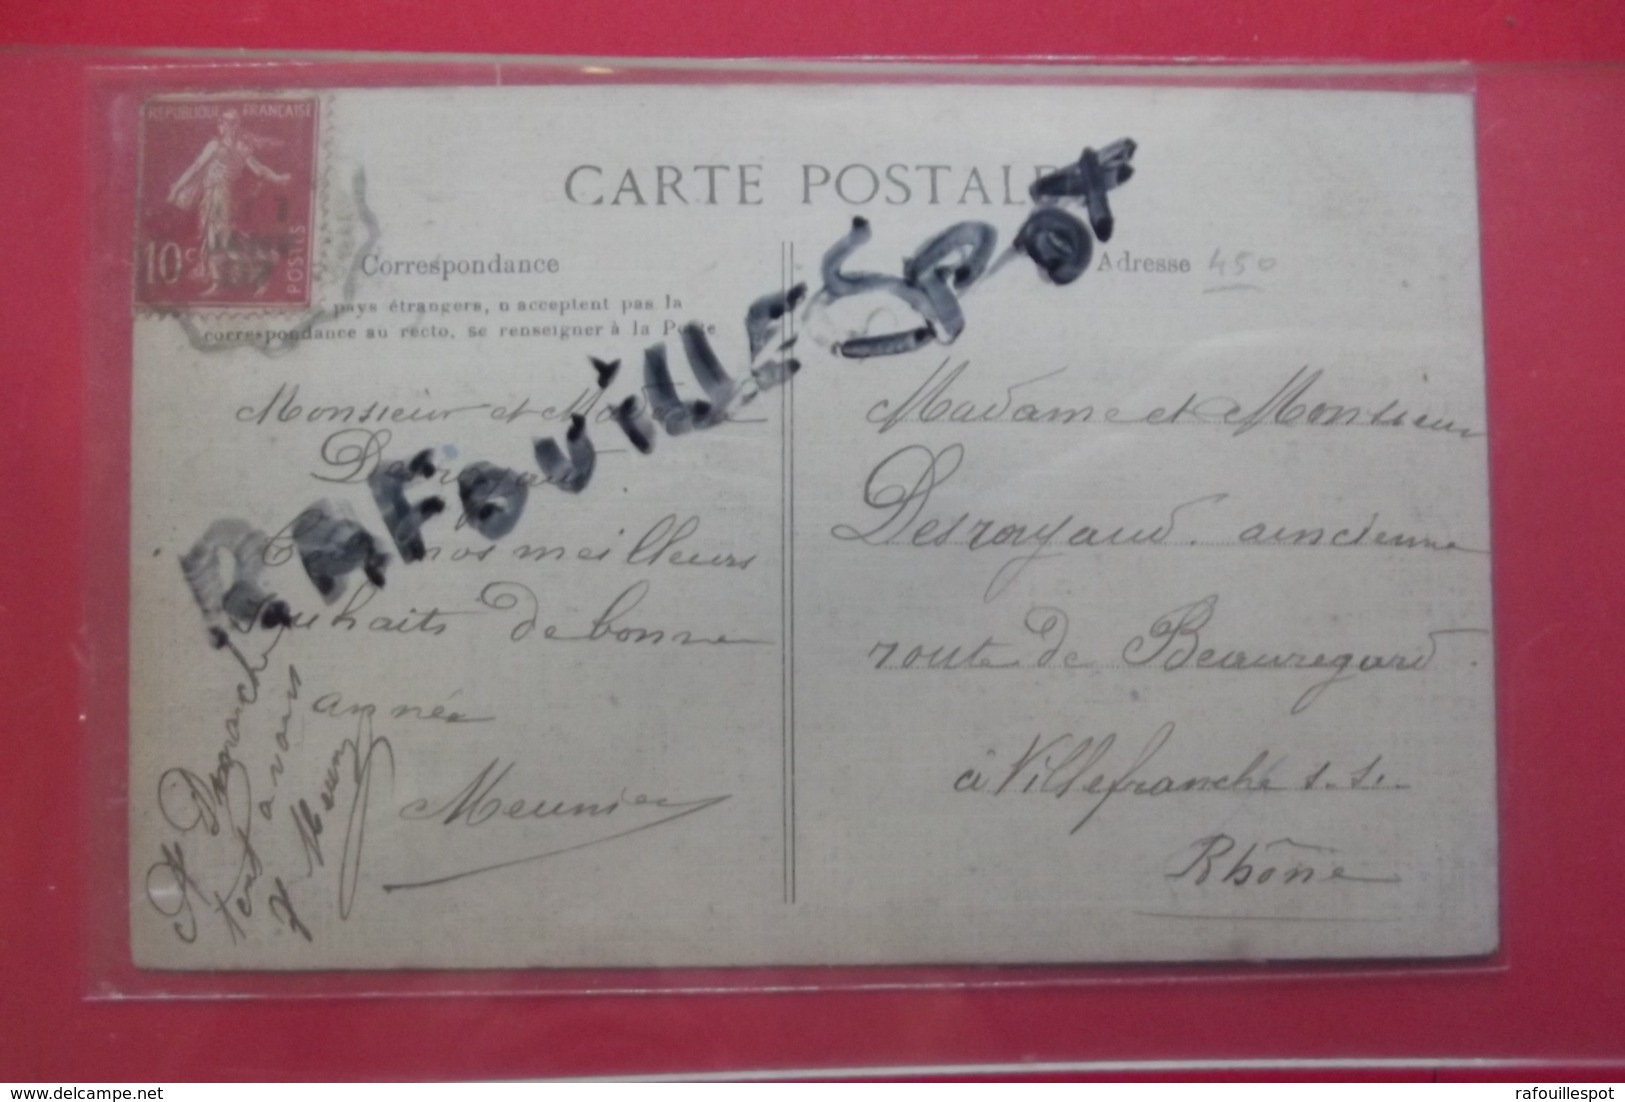 REPUBLIQUE FRANÇAISE
10c
POSTES
CARTE POSTALE
Correspondance
pays étrangers, n acceptent pas la
correspondance au recto, se renseigner à la Poste
Monsieur et Madame
Desroyaud
nos meilleurs
souhaits de bonne
année
Meunier
a vous
Adresse 450
Madame et Monsieur
Desroyaud. ancienne
route de Beauregard.
à Villefranche s. s.
Rhône
RAFOUILLESPOT
delcampe.net
rafouillespot